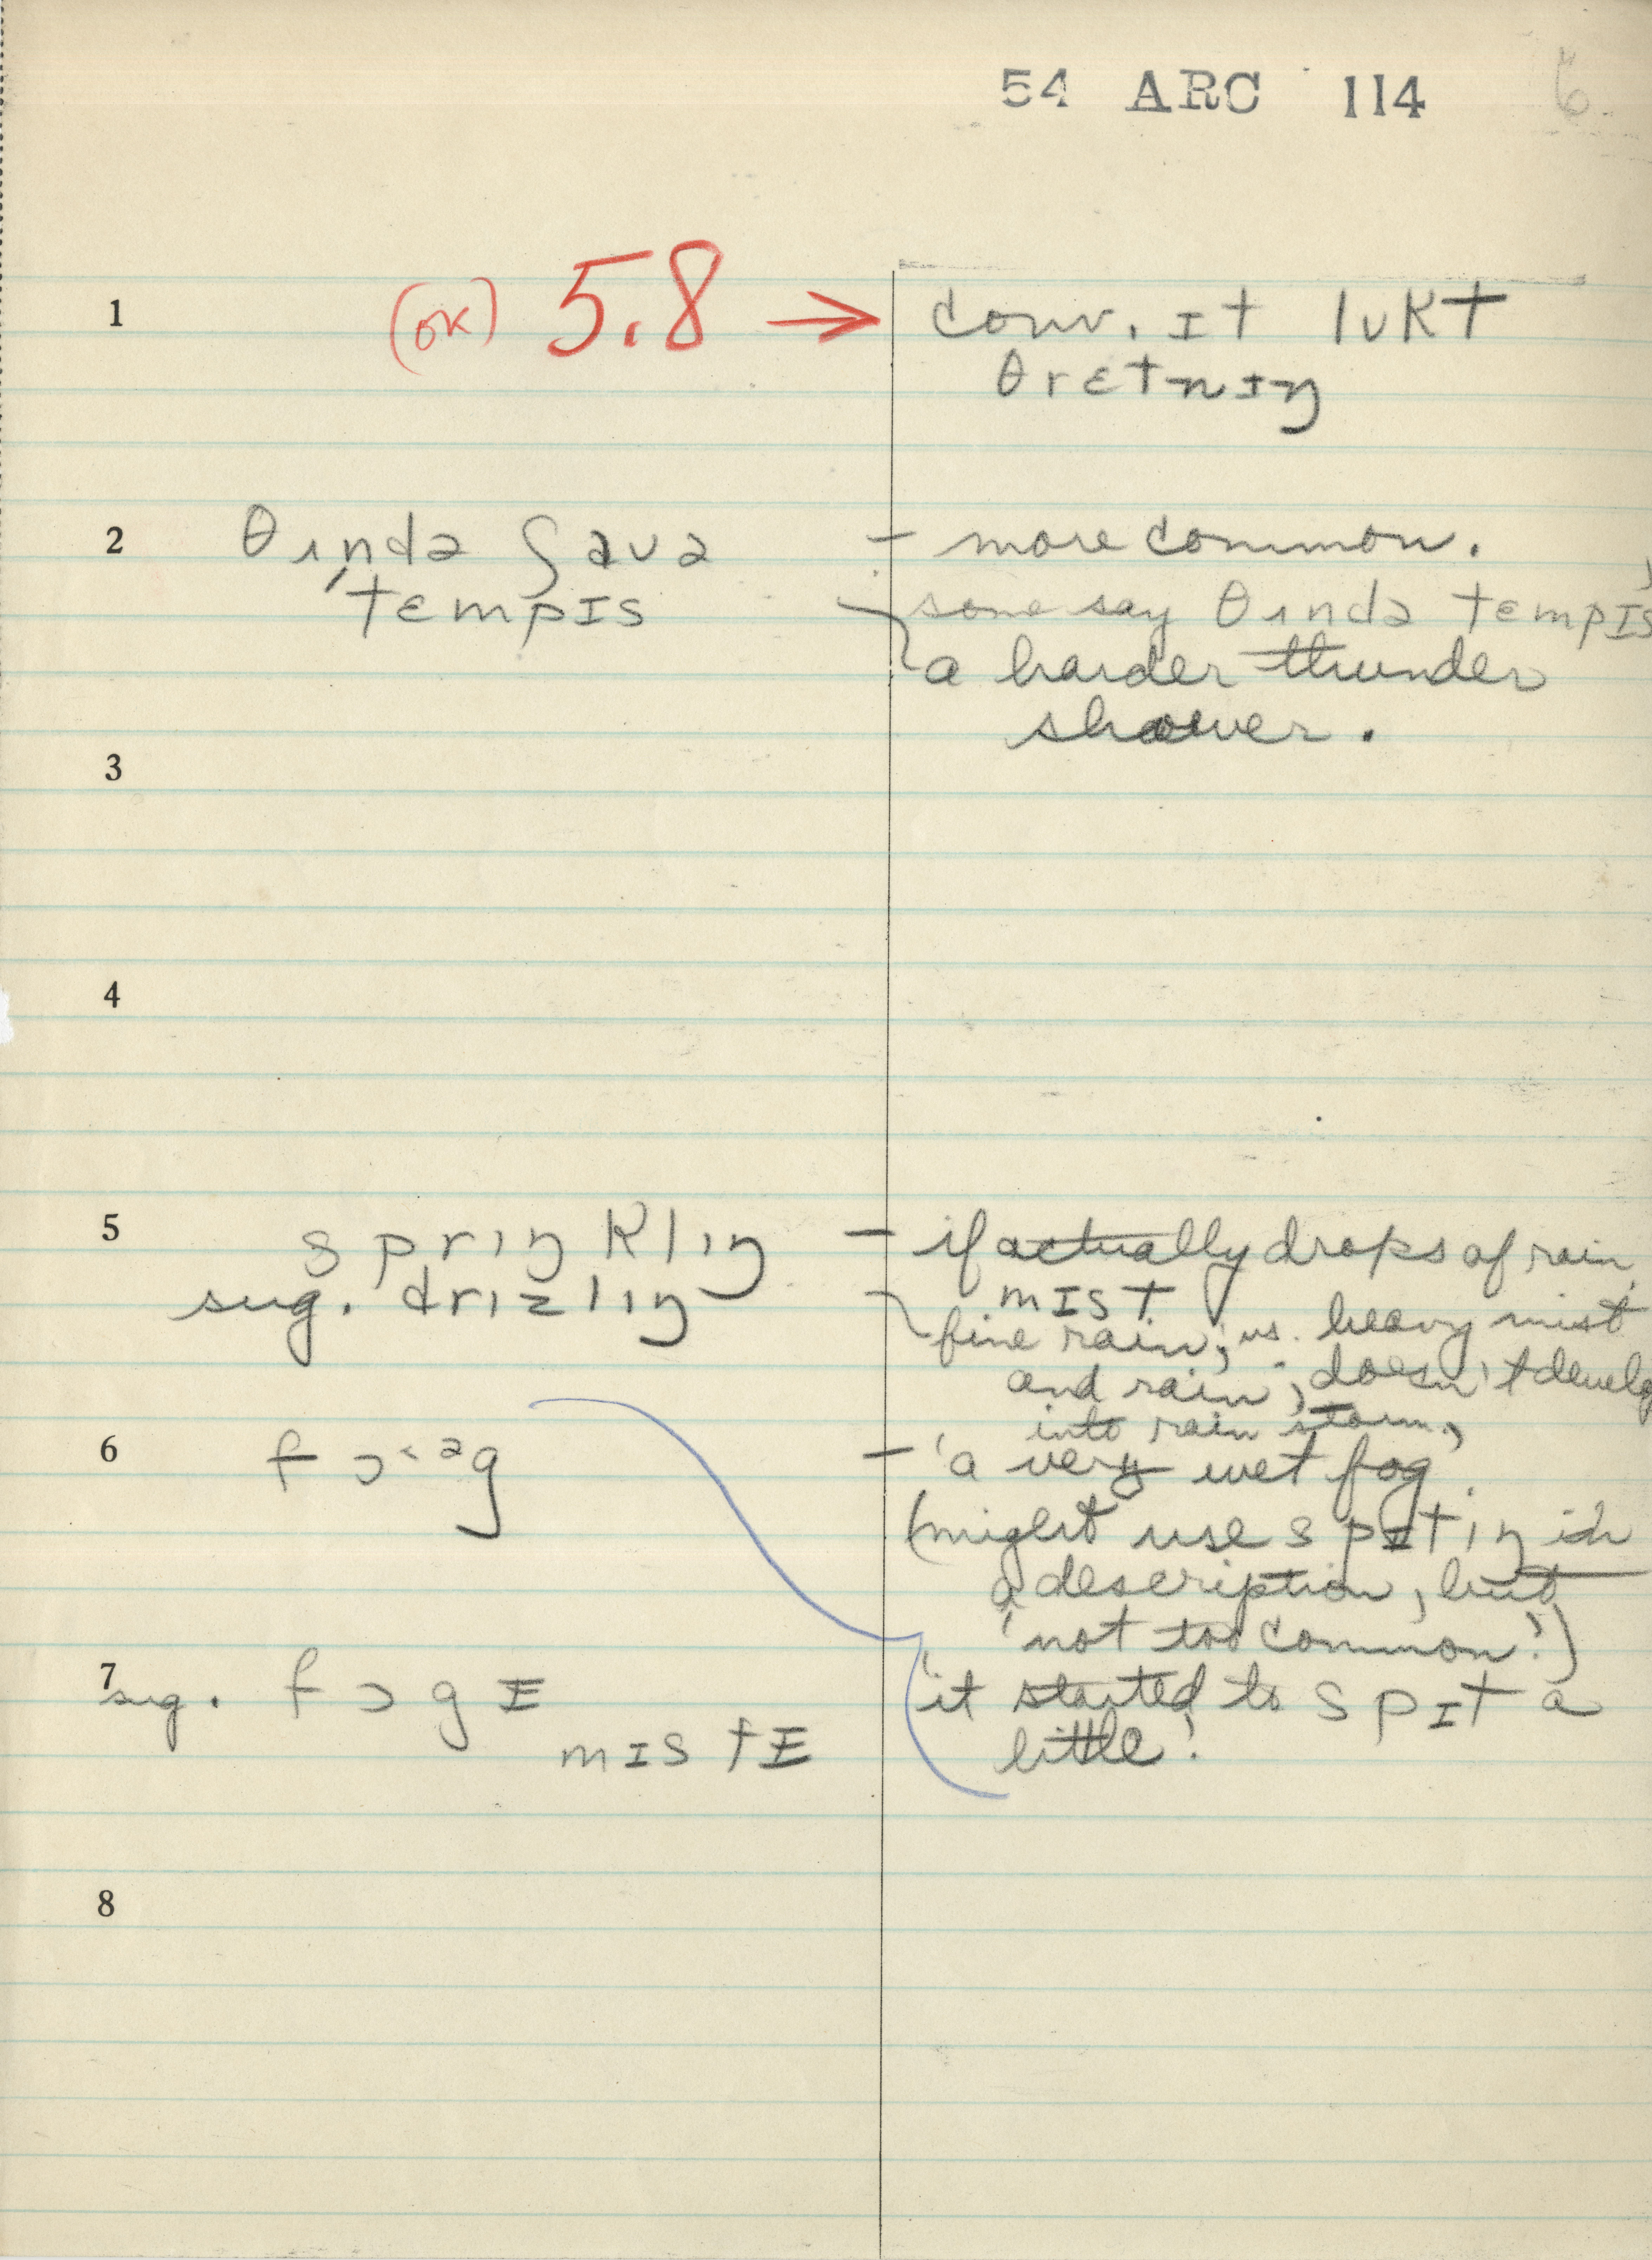 54 ARC 114 6
1 (OK) 5.8 → conv. ɪt lʊkt
θrɛtnɪŋ
2 θɜndə ʃaʊə - more common.
tɛmpɪs some say θɜndə tɛmpɪs,
a harder thunder
shower.
3
4
5 sprɪŋklɪŋ - if actually drops of rain.
sug. drɪzlɪŋ mɪst
fine rain, vs. heavy mist
and rain, doesn't develop
into rain storm,
6 fɔ˂ᵊg - 'a very wet fog.
(might use spɪtɪŋ in
a description, but
'not too common!)
7 sug. fɔgɪ 'it started to spɪt a
mɪstɪ little!
8